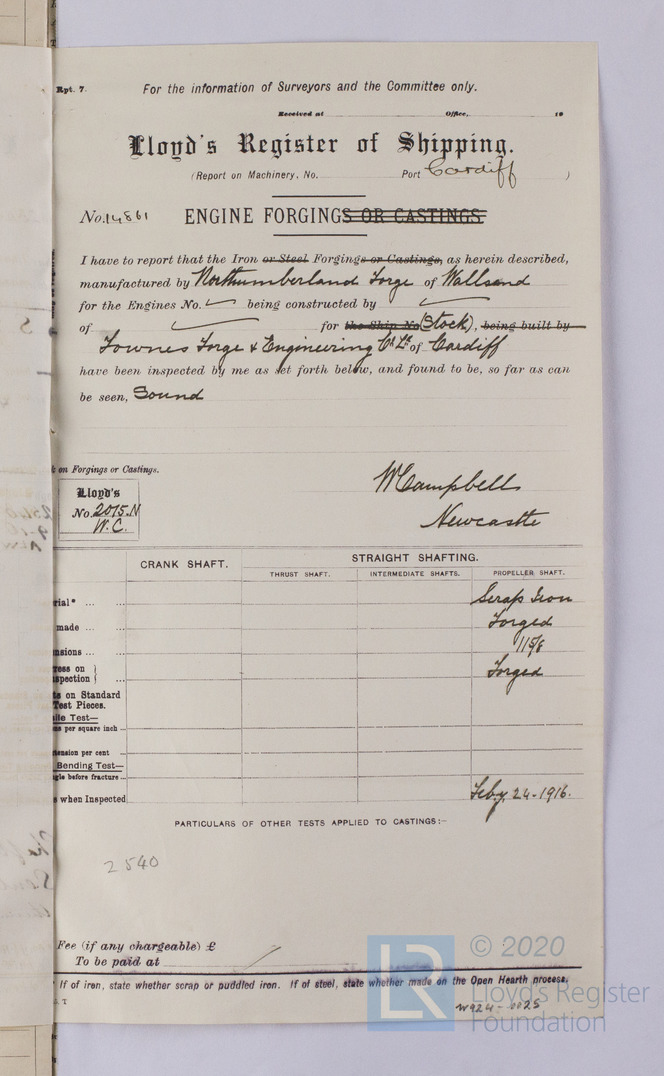 Rpt. 7.
For the information of Surveyors and the Committee only.
Received at Office, 19
Lloyd's Register of Shipping.
(Report on Machinery, No. Port Cardiff )
No. 14861 ENGINE FORGINGS OR CASTINGS
I have to report that the Iron or Steel Forgings or Castings, as herein described,
manufactured by Northumberland Forge of Wallsend
for the Engines No. being constructed by
of for the Ship No (Stock), being built by
Townes Forge & Engineering Co Ld of Cardiff
have been inspected by me as set forth below, and found to be, so far as can
be seen, Sound
on Forgings or Castings.
Lloyd's
No. 2015.N
W.C.
W Campbell
Newcastle
CRANK SHAFT. STRAIGHT SHAFTING.
THRUST SHAFT. INTERMEDIATE SHAFTS. PROPELLER SHAFT.
rial* ... ... Scrap Iron
made ... ... Forged
nsions ... ... 11 5/8
ress on
spection } ... Forged
ts on Standard
Test Pieces.
ile Test—
ns per square inch ...
tension per cent ...
Bending Test—
gle before fracture ...
s when Inspected Feby 24-1916.
PARTICULARS OF OTHER TESTS APPLIED TO CASTINGS:-
2540
Fee (if any chargeable) £
To be paid at
* If of iron, state whether scrap or puddled iron. If of steel, state whether made on the Open Hearth process.
W924-0025
LR
© 2020
Lloyd's Register
Foundation